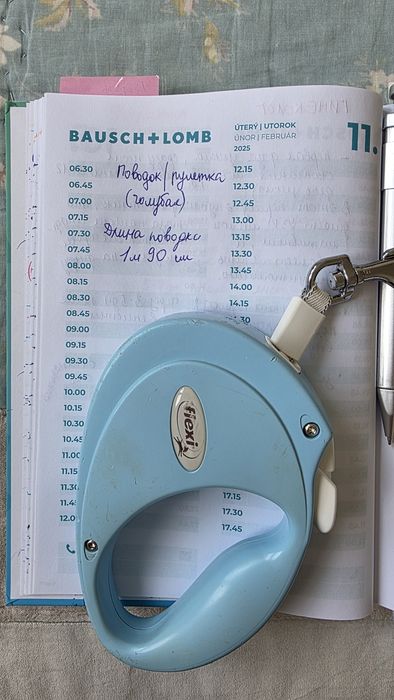 BAUSCH+LOMB
ÚTERÝ | UTOROK
ÚNOR | FEBRUÁR
2025
11.
Поводок/рулетка
(голубая)
Длина поводка
1м 90 см
06.30
06.45
07.00
07.15
07.30
07.45
08.00
08.15
08.30
08.45
09.00
09.15
09.30
09.45
10.00
10.15
10.30
10.45
11.00
11.15
11.30
11.45
12.0
12.15
12.30
12.45
13.00
13.15
13.30
13.45
14.00
14.15
14.30
17.15
17.30
17.45
flexi